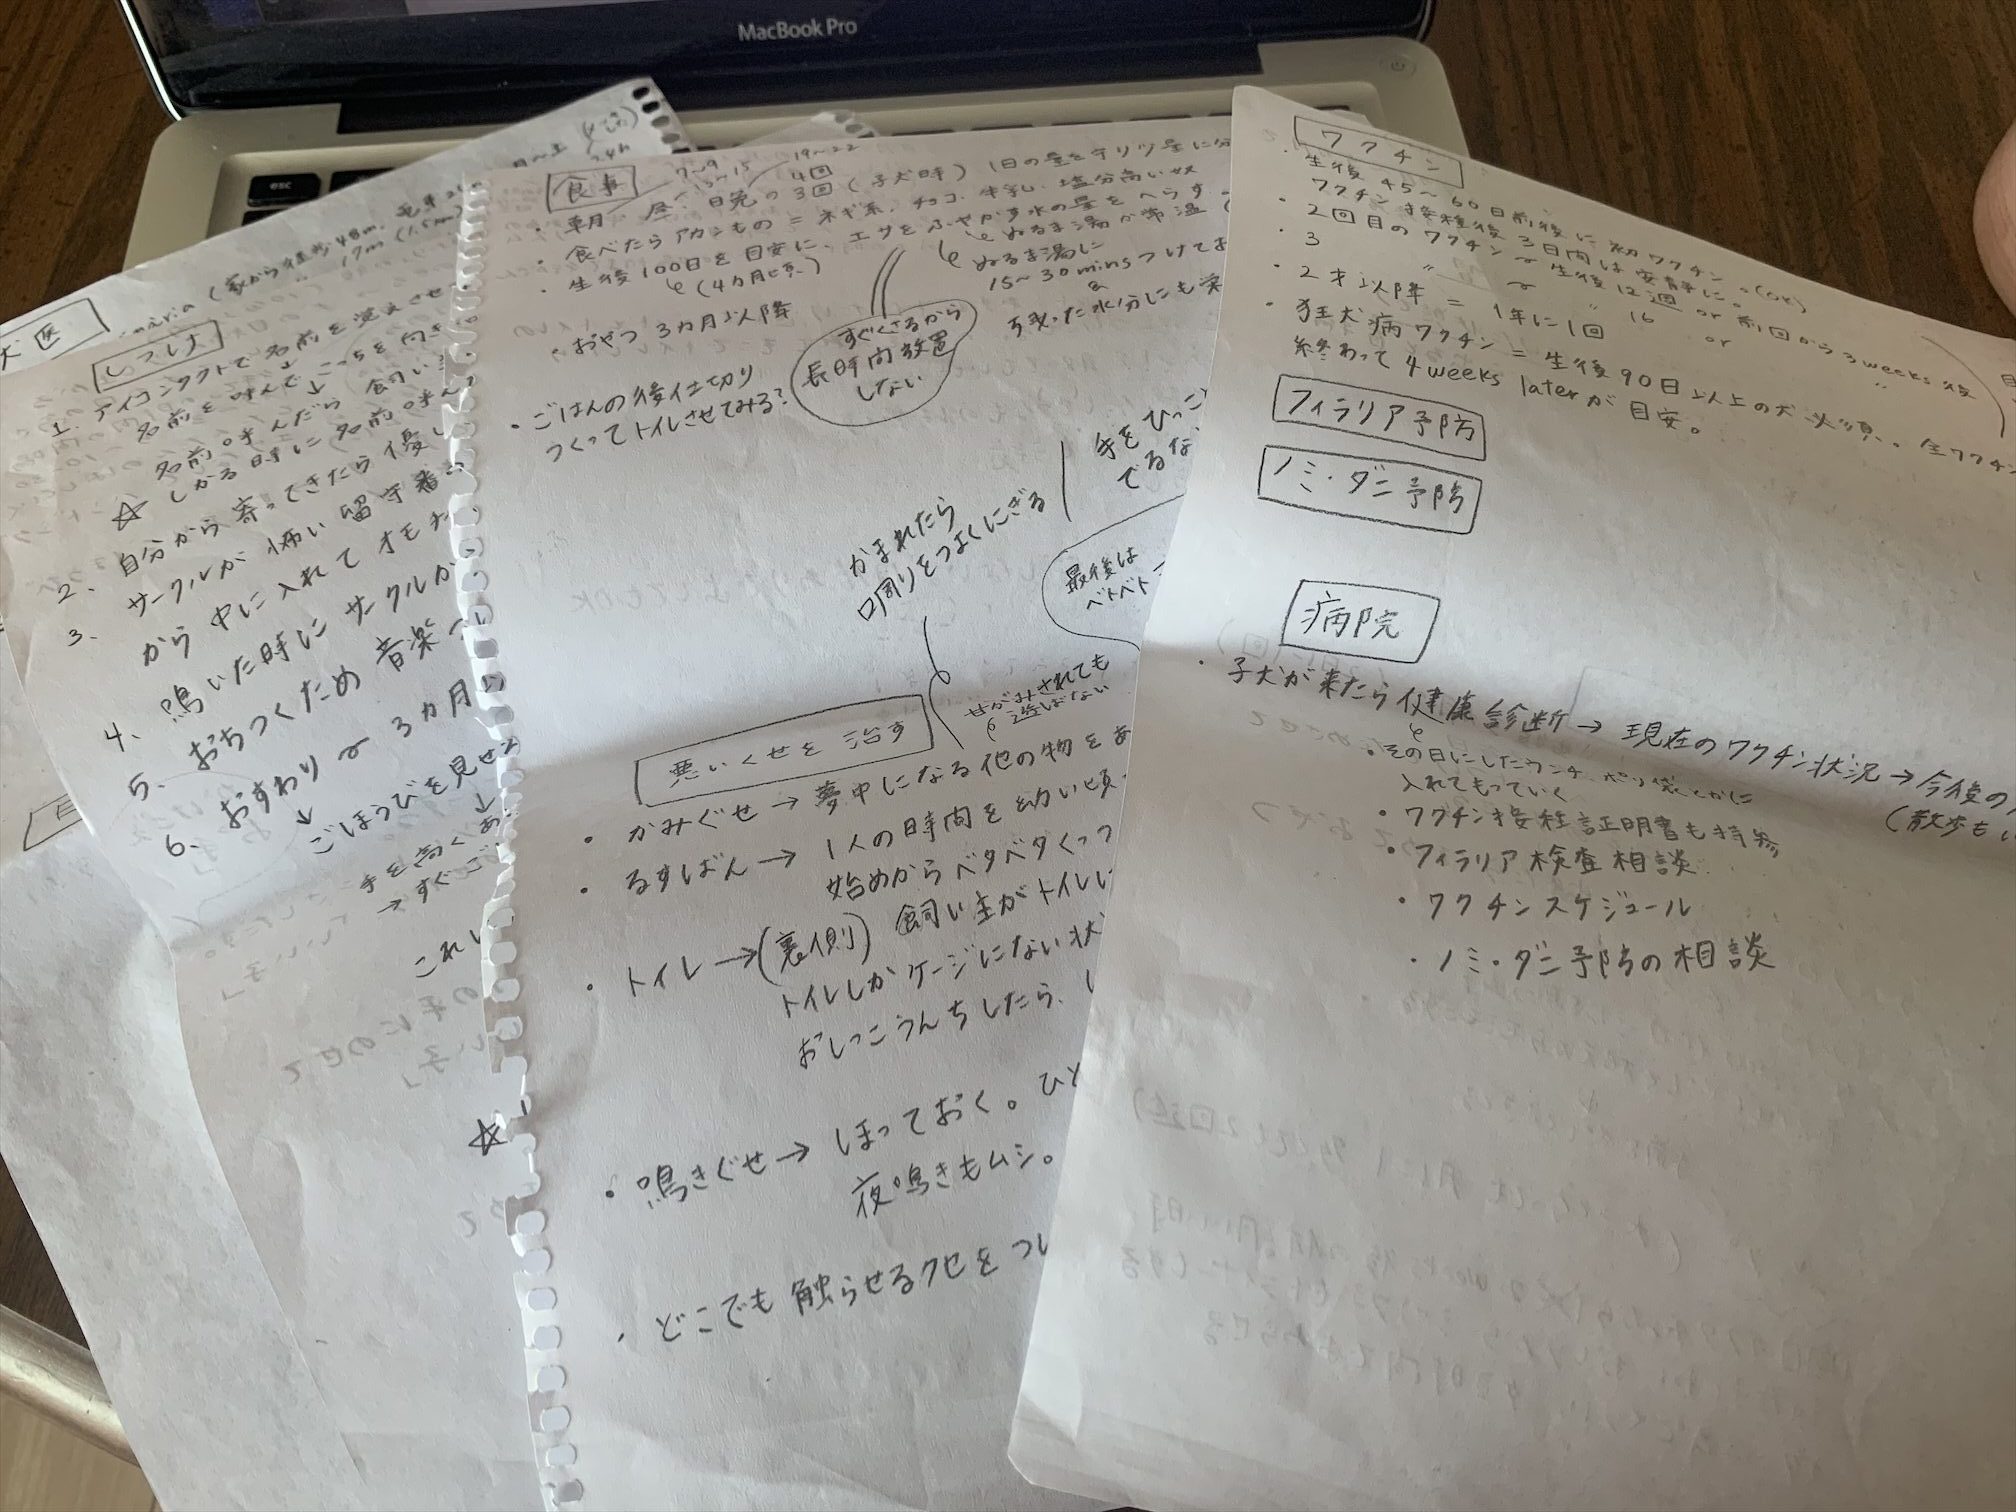 MacBook Pro
esc
犬医
(家から徒歩48m.
17m (1.5km)
しつけ
1. アイコンタクトで名前を覚えさせ
名前を呼んでこっちを向き
↓
名前呼んだら 飼い
☆ しかる時に名前呼ん
2、自分から寄ってきたら優し
3、サークルが怖い留守番の
から中に入れてオモチ
4、鳴いた時にサークルか
5、おちつくため音楽
6、おすわり 3ヵ月
↓
ごほうびを見せ
↓
手を高くあ
→すぐご
これ
☆
食事
7~9
19~22
4回
・朝、昼、晩の3回(子犬時) 1日の量を守りつつ量に分
・食べたらアカンもの = ネギ系、チョコ、牛乳、塩分高い奴
・生後100日を目安に、エサをふやかす水の量をへらす
(4ヵ月頃)
ぬるま湯か常温
ぬるま湯に
15~30minsつけてお
余った水分にも栄
・おやつ 3ヵ月以降
すぐくさるから
長時間放置
しない
・ごはんの後仕切り
つくってトイレさせてみる?
手をひっこ
でるな
かまれたら
口周りをつよくにぎる
最後は
ベトベト
甘がみされても
遊ばない
悪いくせを治す
・かみぐせ→夢中になる他の物をあ
・るすばん→1人の時間を幼い頃
始めからベタベタくっつ
・トイレ→(裏側) 飼い主がトイレに
トイレしかケージにない状
おしっこうんちしたら、し
・鳴きぐせ→ほっておく。ひと
夜鳴きもムシ。
・どこでも触らせるクセをつけ
ワクチン
・生後45~60日前後に初ワクチン。(OK)
ワクチン接種後3日間は安静に。
・2回目のワクチン 生後12週 or 前回から3weeks後
・3 〃 〃 16 or 〃
・2才以降 = 1年に1回
・狂犬病ワクチン = 生後90日以上の犬必須。全ワクチン
終わって4weeks laterが目安。
フィラリア予防
ノミ・ダニ予防
病院
・子犬が来たら健康診断→現在のワクチン状況→今後の
(散歩もい
・その日にしたウンチ ポリ袋とかに
入れてもっていく
・ワクチン接種証明書も持参
・フィラリア検査相談
・ワクチンスケジュール
・ノミ・ダニ予防の相談